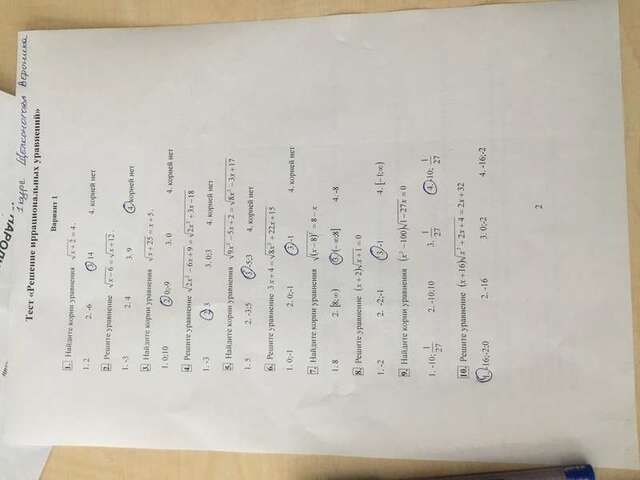 1 курс Щелконогова Вероника
Тест «Решение иррациональных уравнений»
Вариант 1
1. Найдите корни уравнения √x + 2 = 4.
1. 2 2. -6 3. 14 4. корней нет
2. Решите уравнение √x − 6 = √x + 12.
1. -3 2. 4 3. 9 4. корней нет
3. Найдите корни уравнения √x + 25 = x + 5.
1. 0;10 2. 0;-9 3. 0 4. корней нет
4. Решите уравнение √2x² − 6x + 9 = √2x² + 3x − 18
1. -3 2. 3 3. 0;3 4. корней нет
5. Найдите корни уравнения √9x² − 5x + 2 = √8x² − 3x + 17
1. 5 2. -3;5 3. -5;3 4. корней нет
6. Решите уравнение 3x + 4 = √8x² + 22x + 15
1. 0;-1 2. 0;-1 3. -1 4. корней нет
7. Найдите корни уравнения √(x − 8)² = 8 − x
1. 8 2. [8;∞) 3. (−∞;8] 4. -8
8. Решите уравнение (x + 2)√x + 1 = 0
1. -2 2. -2;-1 3. -1 4. [−1;∞)
9. Найдите корни уравнения (x² − 100)√1 − 27x = 0
1. -10; 1/27 2. -10;10 3. 1/27 4. -10; 1/27
10. Решите уравнение (x + 16)√x² + 2x + 4 = 2x + 32
1. -16;-2;0 2. -16 3. 0;-2 4. -16;-2
2